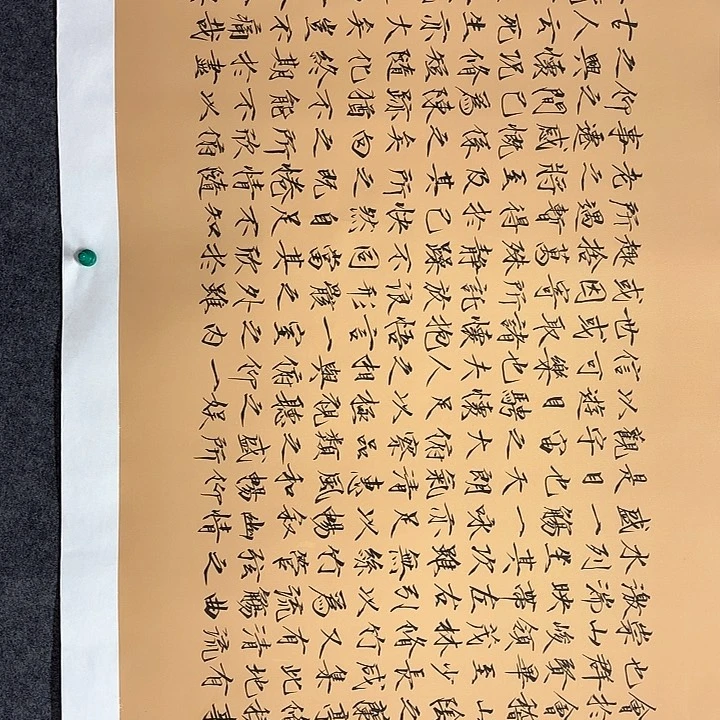 會於會稽山陰之蘭亭修禊事
也群賢畢至少長咸集此地有
崇山峻領茂林修竹又有清流
激湍映帶左右引以為流觴曲
水列坐其次雖無絲竹管弦之
盛一觴一詠亦足以暢敘幽情
是日也天朗氣清惠風和暢仰
觀宇宙之大俯察品類之盛所
以遊目騁懷足以極視聽之娛
信可樂也夫人之相與俯仰一
世或取諸懷抱悟言一室之內
或因寄所託放浪形骸之外雖
趣捨萬殊靜躁不同當其欣於
所遇暫得於己快然自足不知
老之將至及其所之既惓情隨
事遷感慨係之矣向之所欣俯
仰之間已為陳跡猶不能不以
之興懷況修短隨化終期於盡
古人云死生亦大矣豈不痛哉